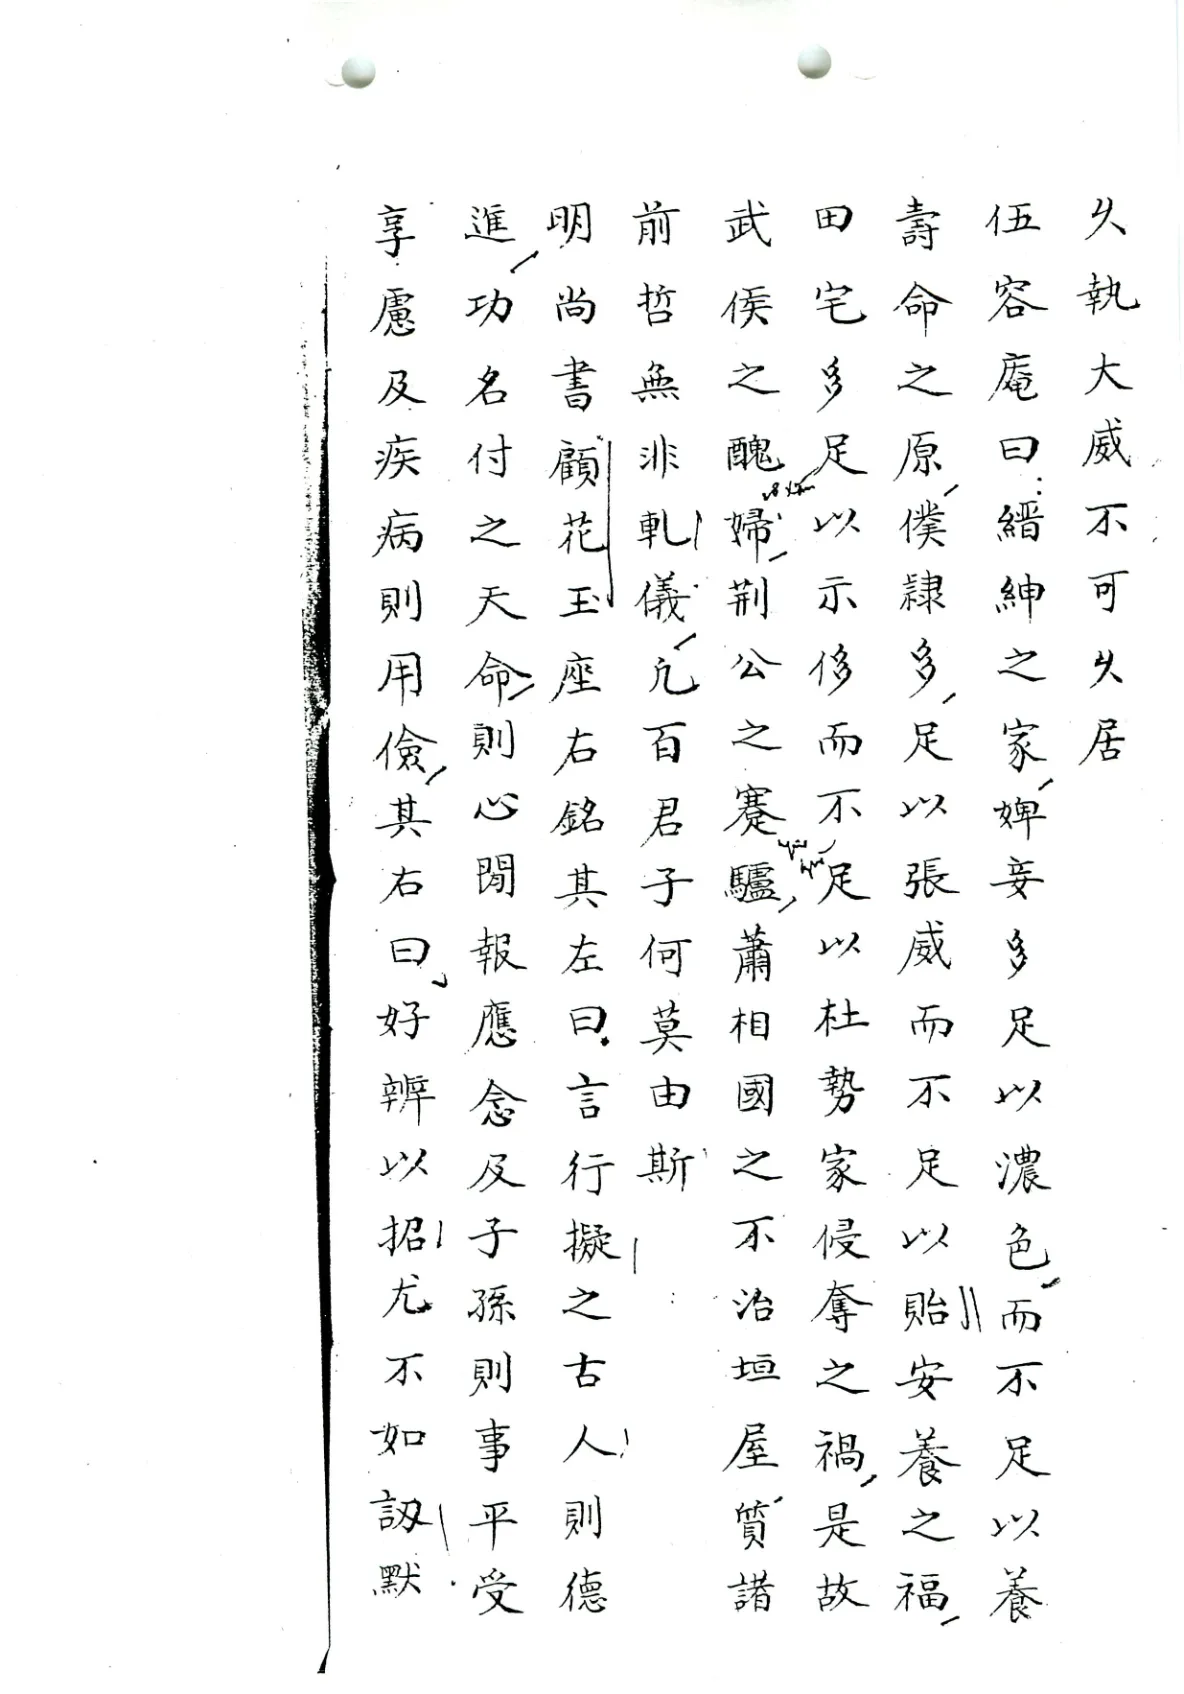 久執大威不可久居
伍容庵曰縉紳之家婢妾多足以濃色而不足以養
壽命之原僕隸多足以張威而不足以貽安養之福
田宅多足以示侈而不足以杜勢家侵奪之禍是故
武侯之醜婦荆公之蹇驢蕭相國之不治垣屋質諸
前哲無非軌儀凢百君子何莫由斯
明尚書顧花玉座右銘其左曰言行擬之古人則德
進功名付之天命則心閒報應念及子孫則事平受
享慮及疾病則用儉其右曰好辨以招尤不如訒默